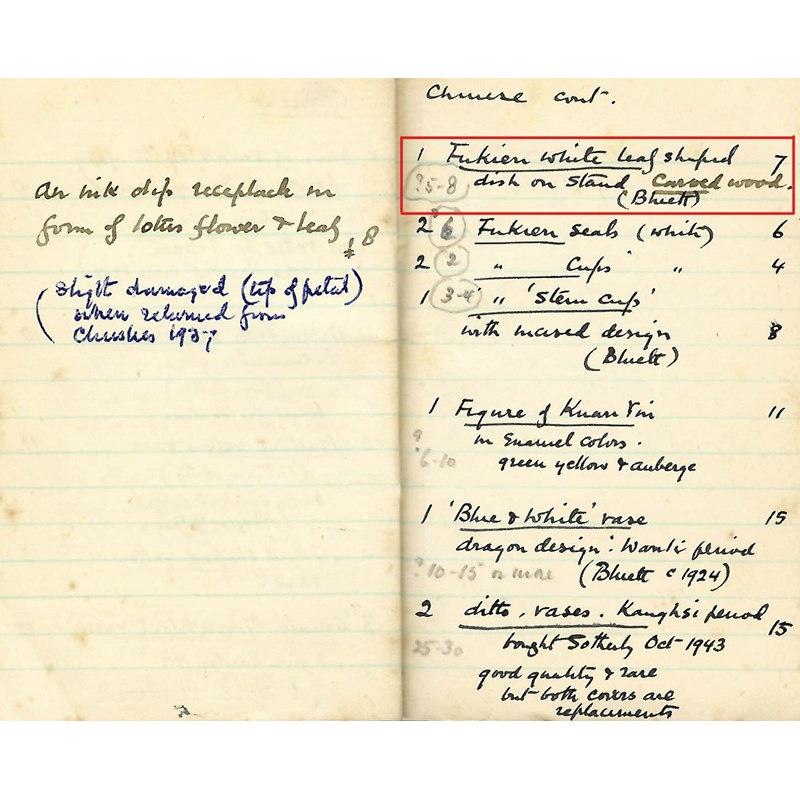 an ink dip receptacle in
form of lotus flower & leaf
£8
(slight damaged (tip of petal)
when returned from
1937
Chinese cont.
1 Fukien white leaf shaped 7
?5-8 dish on stand Carved wood.
(Bluett)
2 6 Fukien seals (white) 6
2 2 " Cups " 4
1 3-4 " 'Stem cup'
with incised design 8
(Bluett)
1 Figure of Kuan Yin 11
? in Enamel colors.
6-10 green yellow & auberge
1 'Blue & White' vase 15
dragon design. Wanli period
?10-15 or more (Bluett c 1924)
2 ditto. vases. Kanghsi period 15
25-30 bought Sotheby Oct 1943
good quality & rare
but both covers are
replacements